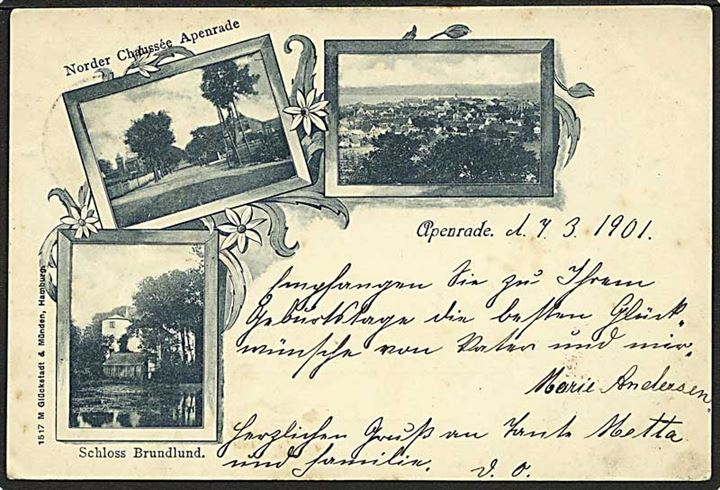 Norder Chaussée Apenrade
Apenrade. d. 7. 3. 1901.
Empfangen Sie zu Ihrem
Geburtstage die besten Glück-
wünsche von Vater und mir.
Marie Andersen.
Herzlichen Gruß an Tante Metta
und Familie. d. o.
Schloss Brundlund.
1517 M Glückstadt & Münden, Hamburg.